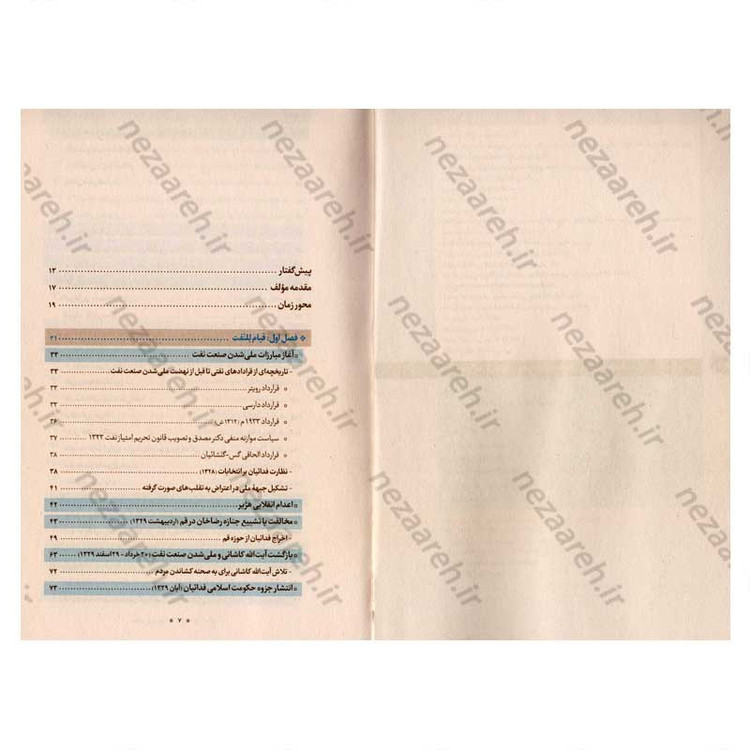 پیش‌گفتار ۱۳
مقدمه مؤلف ۱۷
محور زمان ۱۹
فصل اول: قیام للنفت ۳۱
آغاز مبارزات ملی‌شدن صنعت نفت ۳۳
- تاریخچه‌ای از قرادادهای نفتی تا قبل از نهضت ملی‌شدن صنعت نفت ۳۳
قرارداد رویتر ۳۳
قرارداد دارسی ۳۳
قرارداد ۱۹۳۳ م (۱۳۱۲ ش) ۳۶
سیاست موازنه منفی دکتر مصدق و تصویب قانون تحریم امتیاز نفت ۱۳۲۳ ۳۷
قرارداد الحاقی گس-گلشائیان ۳۸
- نظارت فدائیان بر انتخابات (۱۳۲۸) ۳۸
- تشکیل جبههٔ ملی در اعتراض به تقلب‌های صورت گرفته ۴۱
اعدام انقلابی هژیر ۴۲
مخالفت با تشییع جنازه رضاخان در قم (اردیبهشت ۱۳۲۹) ۴۳
- اخراج فدائیان از حوزه قم ۴۹
بازگشت آیت‌الله کاشانی و ملی‌شدن صنعت نفت (۲۰ خرداد - ۲۹ اسفند ۱۳۲۹) ۶۳
- تلاش آیت‌الله کاشانی برای به صحنه کشاندن مردم ۷۲
انتشار جزوه حکومت اسلامی فدائیان (آبان ۱۳۲۹) ۷۳
* ۷ *
nezaareh.ir
nezaareh.ir
nezaareh.ir
nezaareh.ir
nezaareh.ir
nezaareh.ir
nezaareh.ir
nezaareh.ir